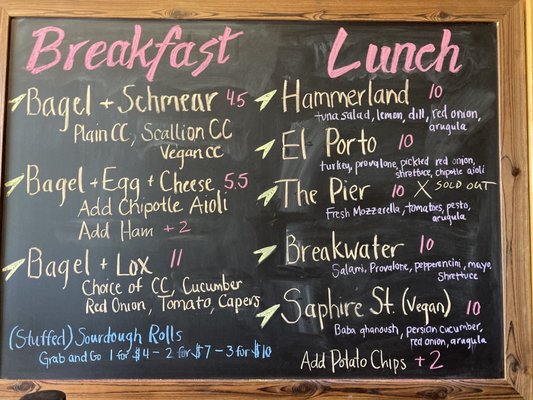 Breakfast
Bagel + Schmear 4.5
Plain CC, Scallion CC
Vegan CC
Bagel + Egg + Cheese 5.5
Add Chipotle Aioli
Add Ham + 2
Bagel + Lox 11
Choice of CC, Cucumber
Red Onion, Tomato, Capers
(Stuffed) Sourdough Rolls
Grab and Go 1 for $4 - 2 for $7 - 3 for $10
Lunch
Hammerland 10
tuna salad, lemon, dill, red onion,
arugula
El Porto 10
turkey, provalone, pickled red onion,
shrettuce, chipotle aioli
The Pier 10 X SOLD OUT
Fresh Mozzarella, tomatoes, pesto,
arugula
Breakwater 10
Salami, Provalone, pepperencini, mayo
Shrettuce
Saphire St. (Vegan) 10
Baba ghanoush, persian cucumber,
red onion, arugula
Add Potato Chips + 2